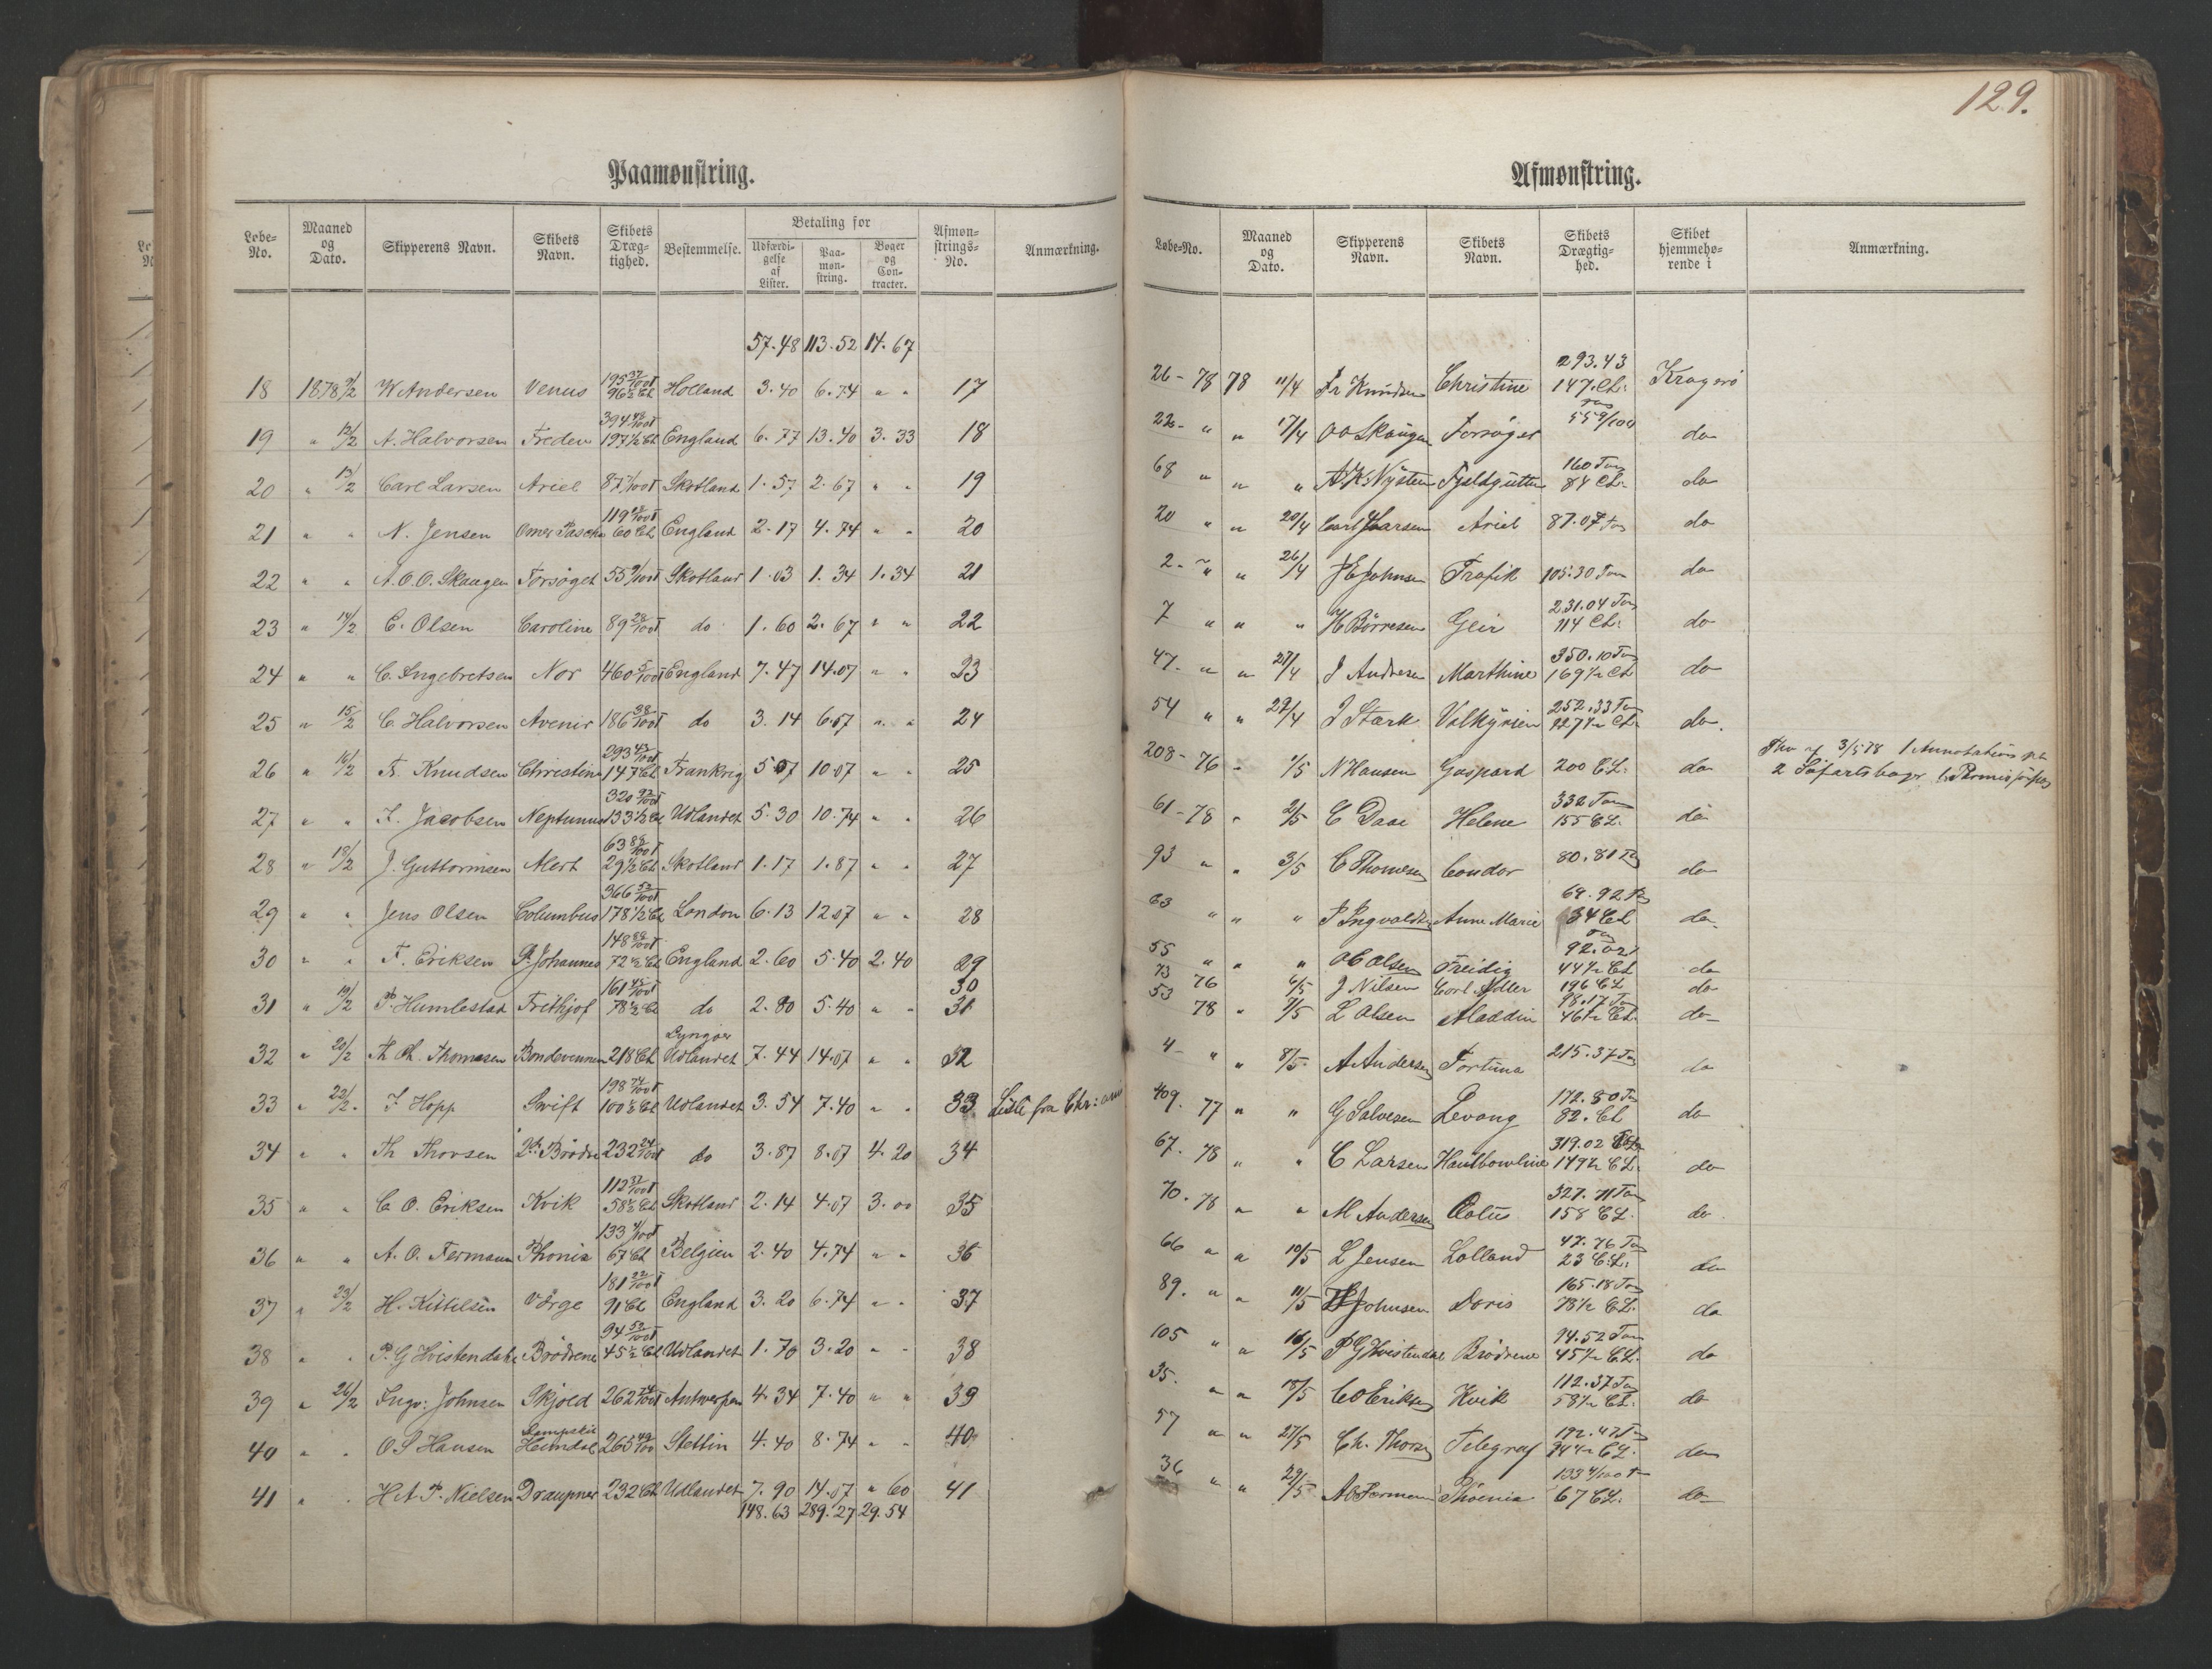 129.
Paamønstring.
Løbe-No. Maaned og Dato. Skipperens Navn. Skibets Navn. Skibets Drægtighed. Bestemmelse. Betaling for Udfærdigelse af Lister. Paamønstring. Bøger og Contracter. Afmønstrings-No. Anmærkning.
57.48 113.52 14.67
18 1878 9/2 W Andersen Venus 195 37/100 T 96 1/2 CL Holland 3.40 6.74 " " 17
19 " 12/2 A. Halvorsen Freden 394 48/100 T 197 1/2 CL England 6.77 13.40 3.33 18
20 " 13/2 Carl Larsen Ariel 87 7/100 T Skotland 1.57 2.67 " " 19
21 " " N. Jensen Omer Pascha 119 /100 T 60 CL England 2.17 4.74 " " 20
22 " " A.O.O. Skaugen Forsøget 55 9/100 T Skotland 1.03 1.34 1.34 21
23 " 14/2 C. Olsen Caroline 89 28/100 T do 1.60 2.67 " " 22
24 " " C. Ingebretsen Nor 460 5/100 T England 7.47 14.07 " " 23
25 " 15/2 C. Halvorsen Avenir 186 38/100 T do 3.14 6.07 " " 24
26 " 16/2 Fr. Knudsen Christine 293 43/100 T 147 CL Frankrig 5.07 10.07 " " 25
27 " " I. Jacobsen Neptunus 320 92/100 T 153 1/2 CL Udlandet 5.30 10.74 " " 26
28 " 18/2 J. Guttormsen Alert 63 88/100 T 29 1/2 CL Skotland 1.17 1.87 " " 27
29 " " Jens Olsen Columbus 366 52/100 T 178 1/2 CL London 6.13 12.07 " " 28
30 " " F. Eriksen P. Johannes 148 88/100 T 72 1/2 CL England 2.60 5.40 2.40 29
30
31 " 19/2 P. Humlestad Frithjof 161 45/100 T 78 1/2 CL do 2.80 5.40 " " 31
32 " 20/2 Th Ch. Thomesen Bondevennen 218 CL Lyngør Udlandet 7.44 14.07 " " 32
33 " 22/2. I Hopp Swift 198 74/100 T 100 1/2 CL Udlandet 3.54 7.40 " " 33 Liste fra Chr:ania
34 " " Th Thorsen 2de Brødre 232 24/100 T do 3.87 8.07 4.20 34
35 " " C. O. Eriksen Kvik 112 37/100 T 58 1/2 CL Skotland 2.14 4.07 3.00 35
36 " " A. O. Fermann Phønix 133 4/100 T 67 CL Belgien 2.40 4.74 " " 36
37 " 23/2 H. Kittilsen Vørge 181 22/100 T 91 CL England 3.20 6.74 " " 37
38 " " P. G Hvistendahl Brødrene 94 52/100 T 45 1/2 CL Udlandet 1.70 3.20 " " 38
39 " 26/2 Ingv: Johnsen Skjold 262 74/100 T Antwerpen 4.34 7.40 " " 39
40 " " O. S Hansen Dampskib Heimdal 265 49/100 Stettin 4.40 8.74 " " 40
41 " " H A P. Nielsen Draupner 232 CL Udlandet 7.90 14.07 " 60 41
148.63 289.27 29.54
Afmønstring.
Løbe-No. Maaned og Dato. Skipperens Navn. Skibets Navn. Skibets Drægtighed. Skibet hjemmehørende i Anmærkning.
26-78 78 11/4 Fr Knudsen Christine 293.43 147 CL. Kragerø
22- " " 17/4 O O Skaugen Forsøget 55 9/100 do
68 " " " A K Nysten Fjeldgutten 160 Tons 84 CL. do
20 " " 20/4 Carl Larsen Ariel 87.07 Tons do
2- " " 26/4 J E Johnsen Trafik 105.30 Tons do
7 " " " H Børresen Geir 231.04 Tons 114 CL. do
47- " " 27/4 J Andresen Marthine 350.10 Tons 169 1/2 CL do
54 " " 29/4 J Stark Valkyrien 252.33 Tons 127 1/2 CL. do.
208-76 - 1/5 N Hansen Gaspard 200 CL. do 3/5 78 1 Annotations 2 Søfartsbøger
61-78 " 2/5 C Daae Helene 332 Tons 155 CL. do
93 " " 3/5 C Thomesen Condor 80.81 Tons do
63 " " " P Ingvaldsen Anne Marie 69.92 34 CL do.
55 " " " O C Olsen Freidig Tons 92.02 44 1/2 CL do
73 76 6/5 J Nilsen Carl Adler 196 CL do
53 78 " 7/5 L Olsen Aladdin 98.17 Tons 46 1/2 CL. do
4- " " 8/5 A Andersen Fortuna 215.37 Tons do
409. 77 " " G Salvesen Levang 172.80 Tons 82. CL do
67. 78 " " C Larsen Hautbowline 319.02 149 1/2 CL. do
70. 78 " " M Andersen Æolus 327.71 Tons 158 CL. do
66 " " 10/5 L Jensen Lolland 47.76 Tons 23 CL. do
89. " " 11/5 Johnsen Doris 165.18 Tons 78 1/2 CL. do
105 " " 16/5 P G Hvistendal Brødrene 94.52 Tons 45 1/2 CL. do
35. " " 18/5 C O Eriksen Kvik 112.37 Tons 58 1/2 CL. do
57 " " 27/5 Ch. Thorsen Telegraf 192.47 Tons 94 1/2 CL. do
36 " " 29/5 A O Fermann Phoenix 133 4/100 T 67 CL. do